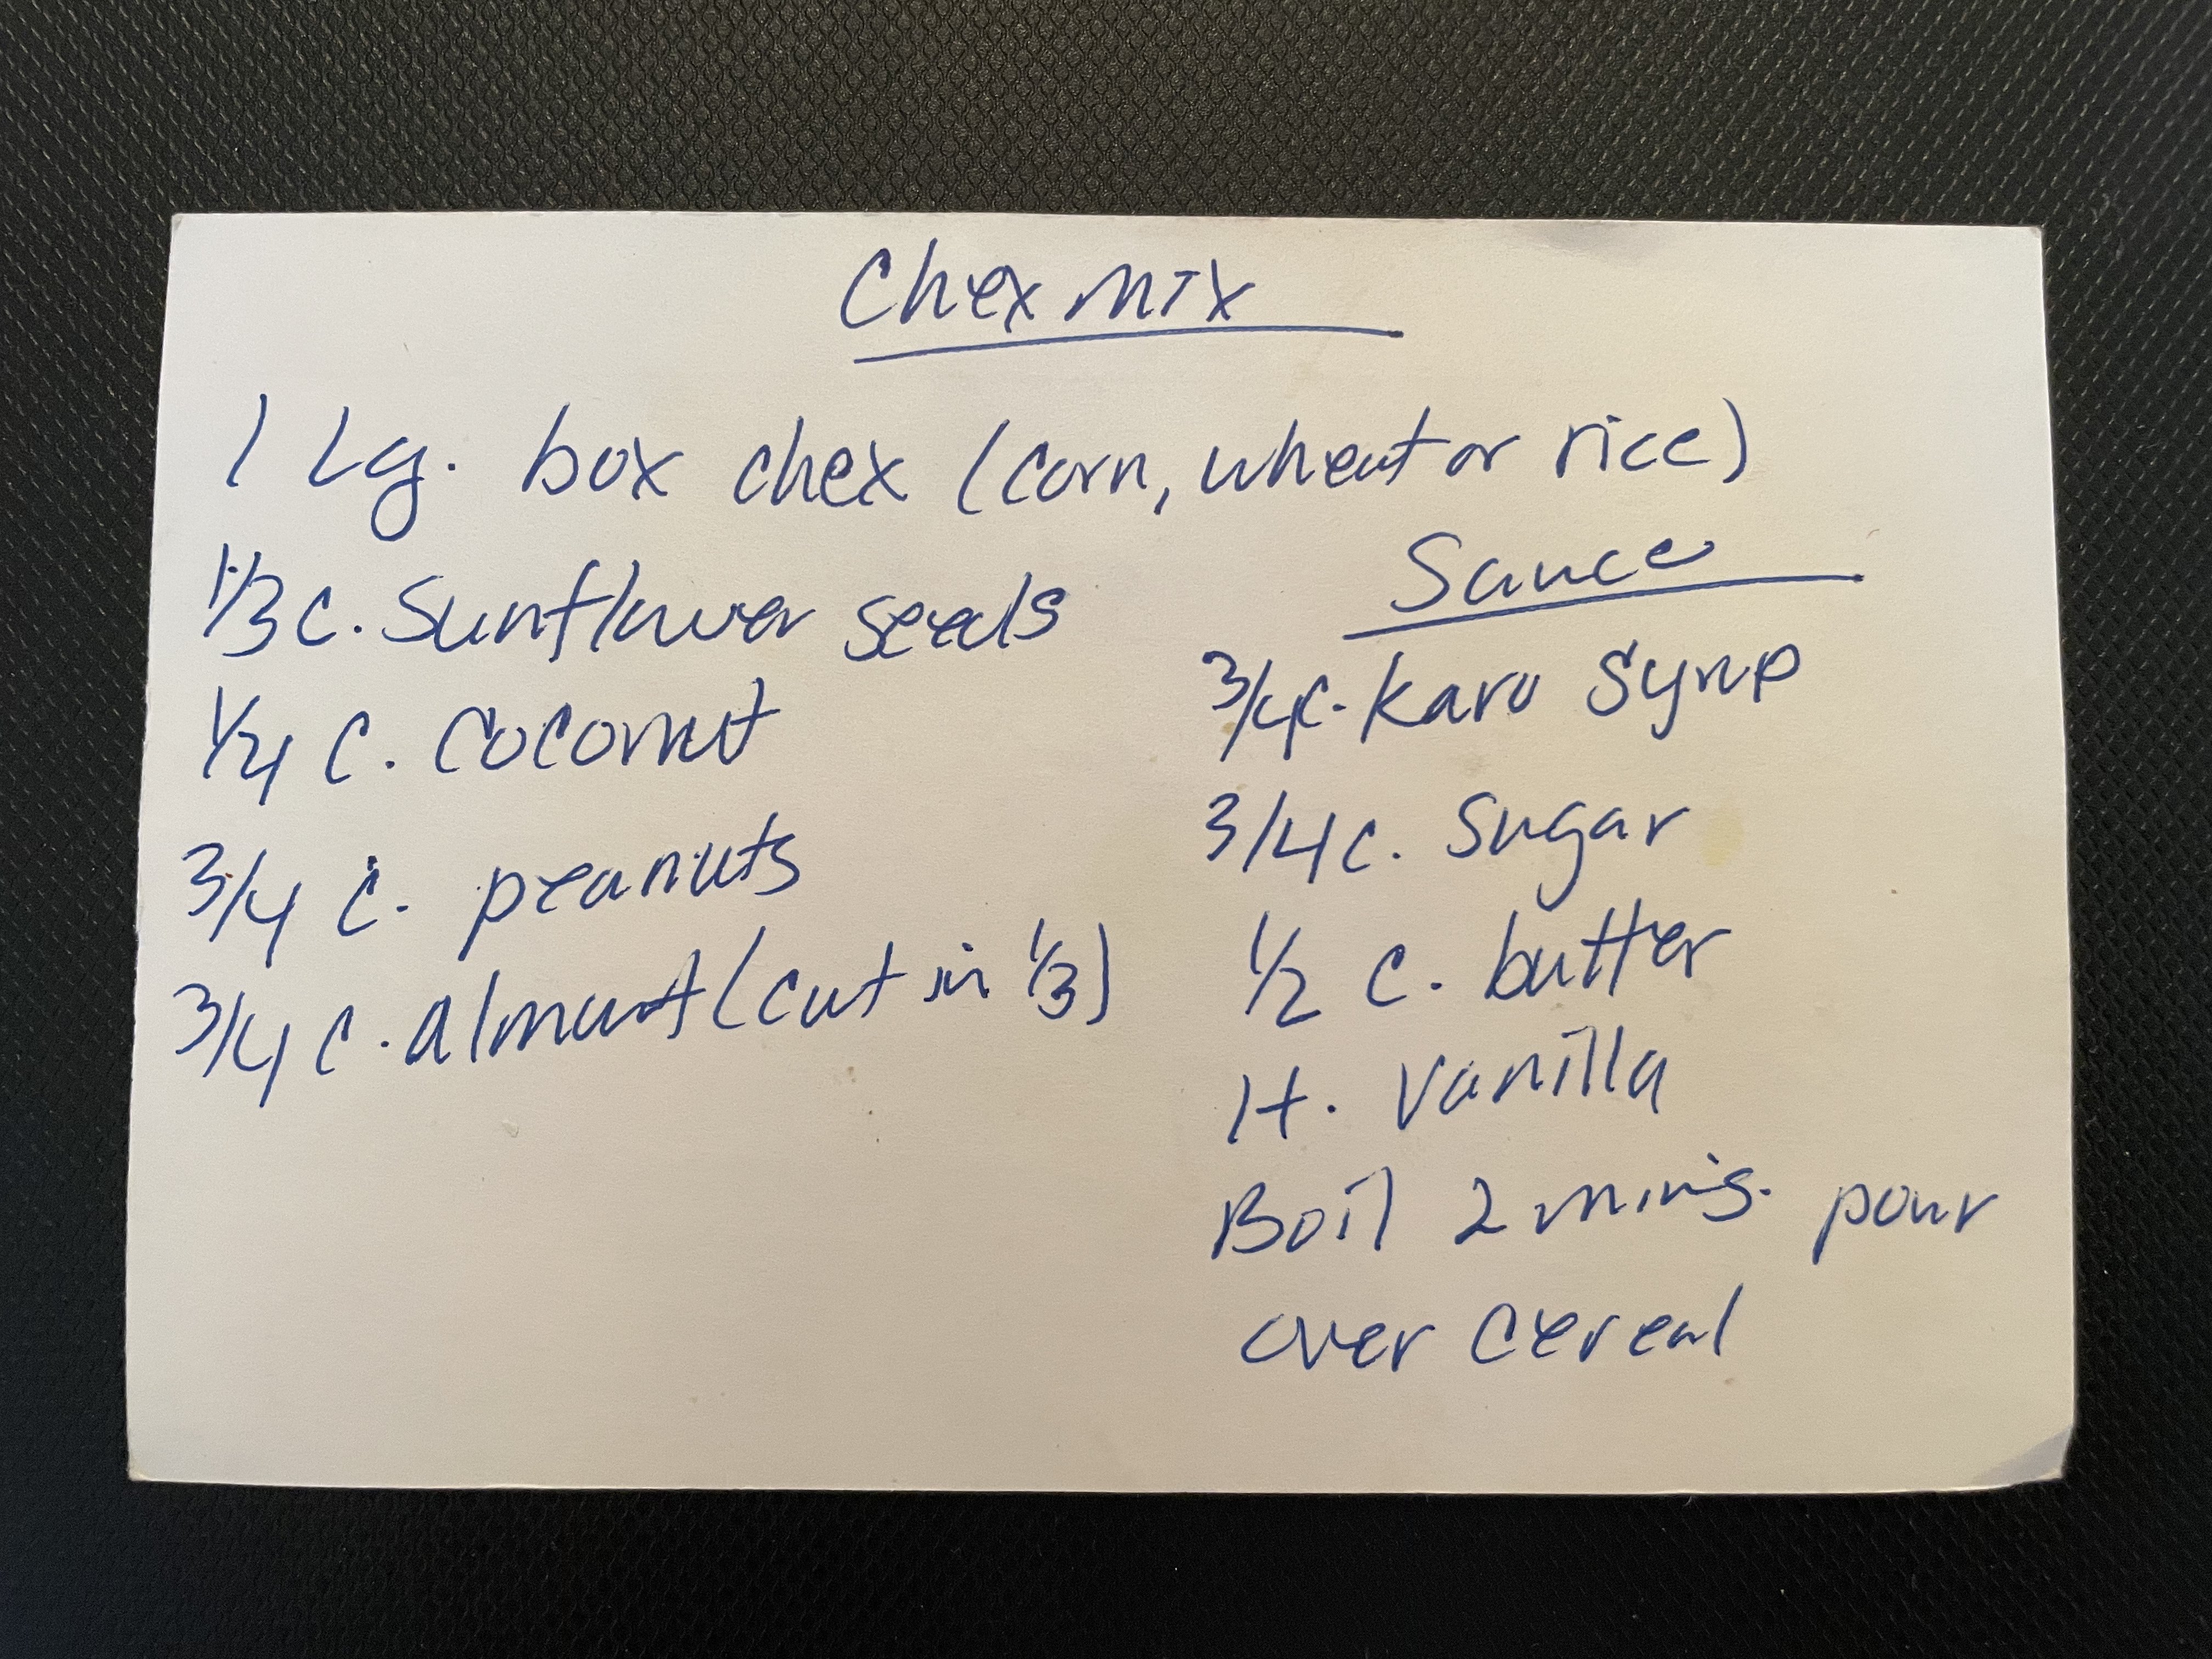 Chex mix
1 Lg. box chex (corn, wheat or rice)
1/3 c. Sunflower seeds
1/4 c. Coconut
3/4 c. peanuts
3/4 c. almunt (cut in 1/3)
Sauce
3/4 c. Karo Syrup
3/4 c. Sugar
1/2 c. butter
1 t. Vanilla
Boil 2 mins. pour
over cereal